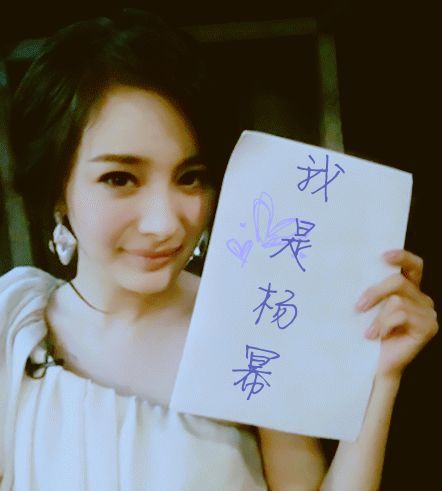 我
是
杨
幂